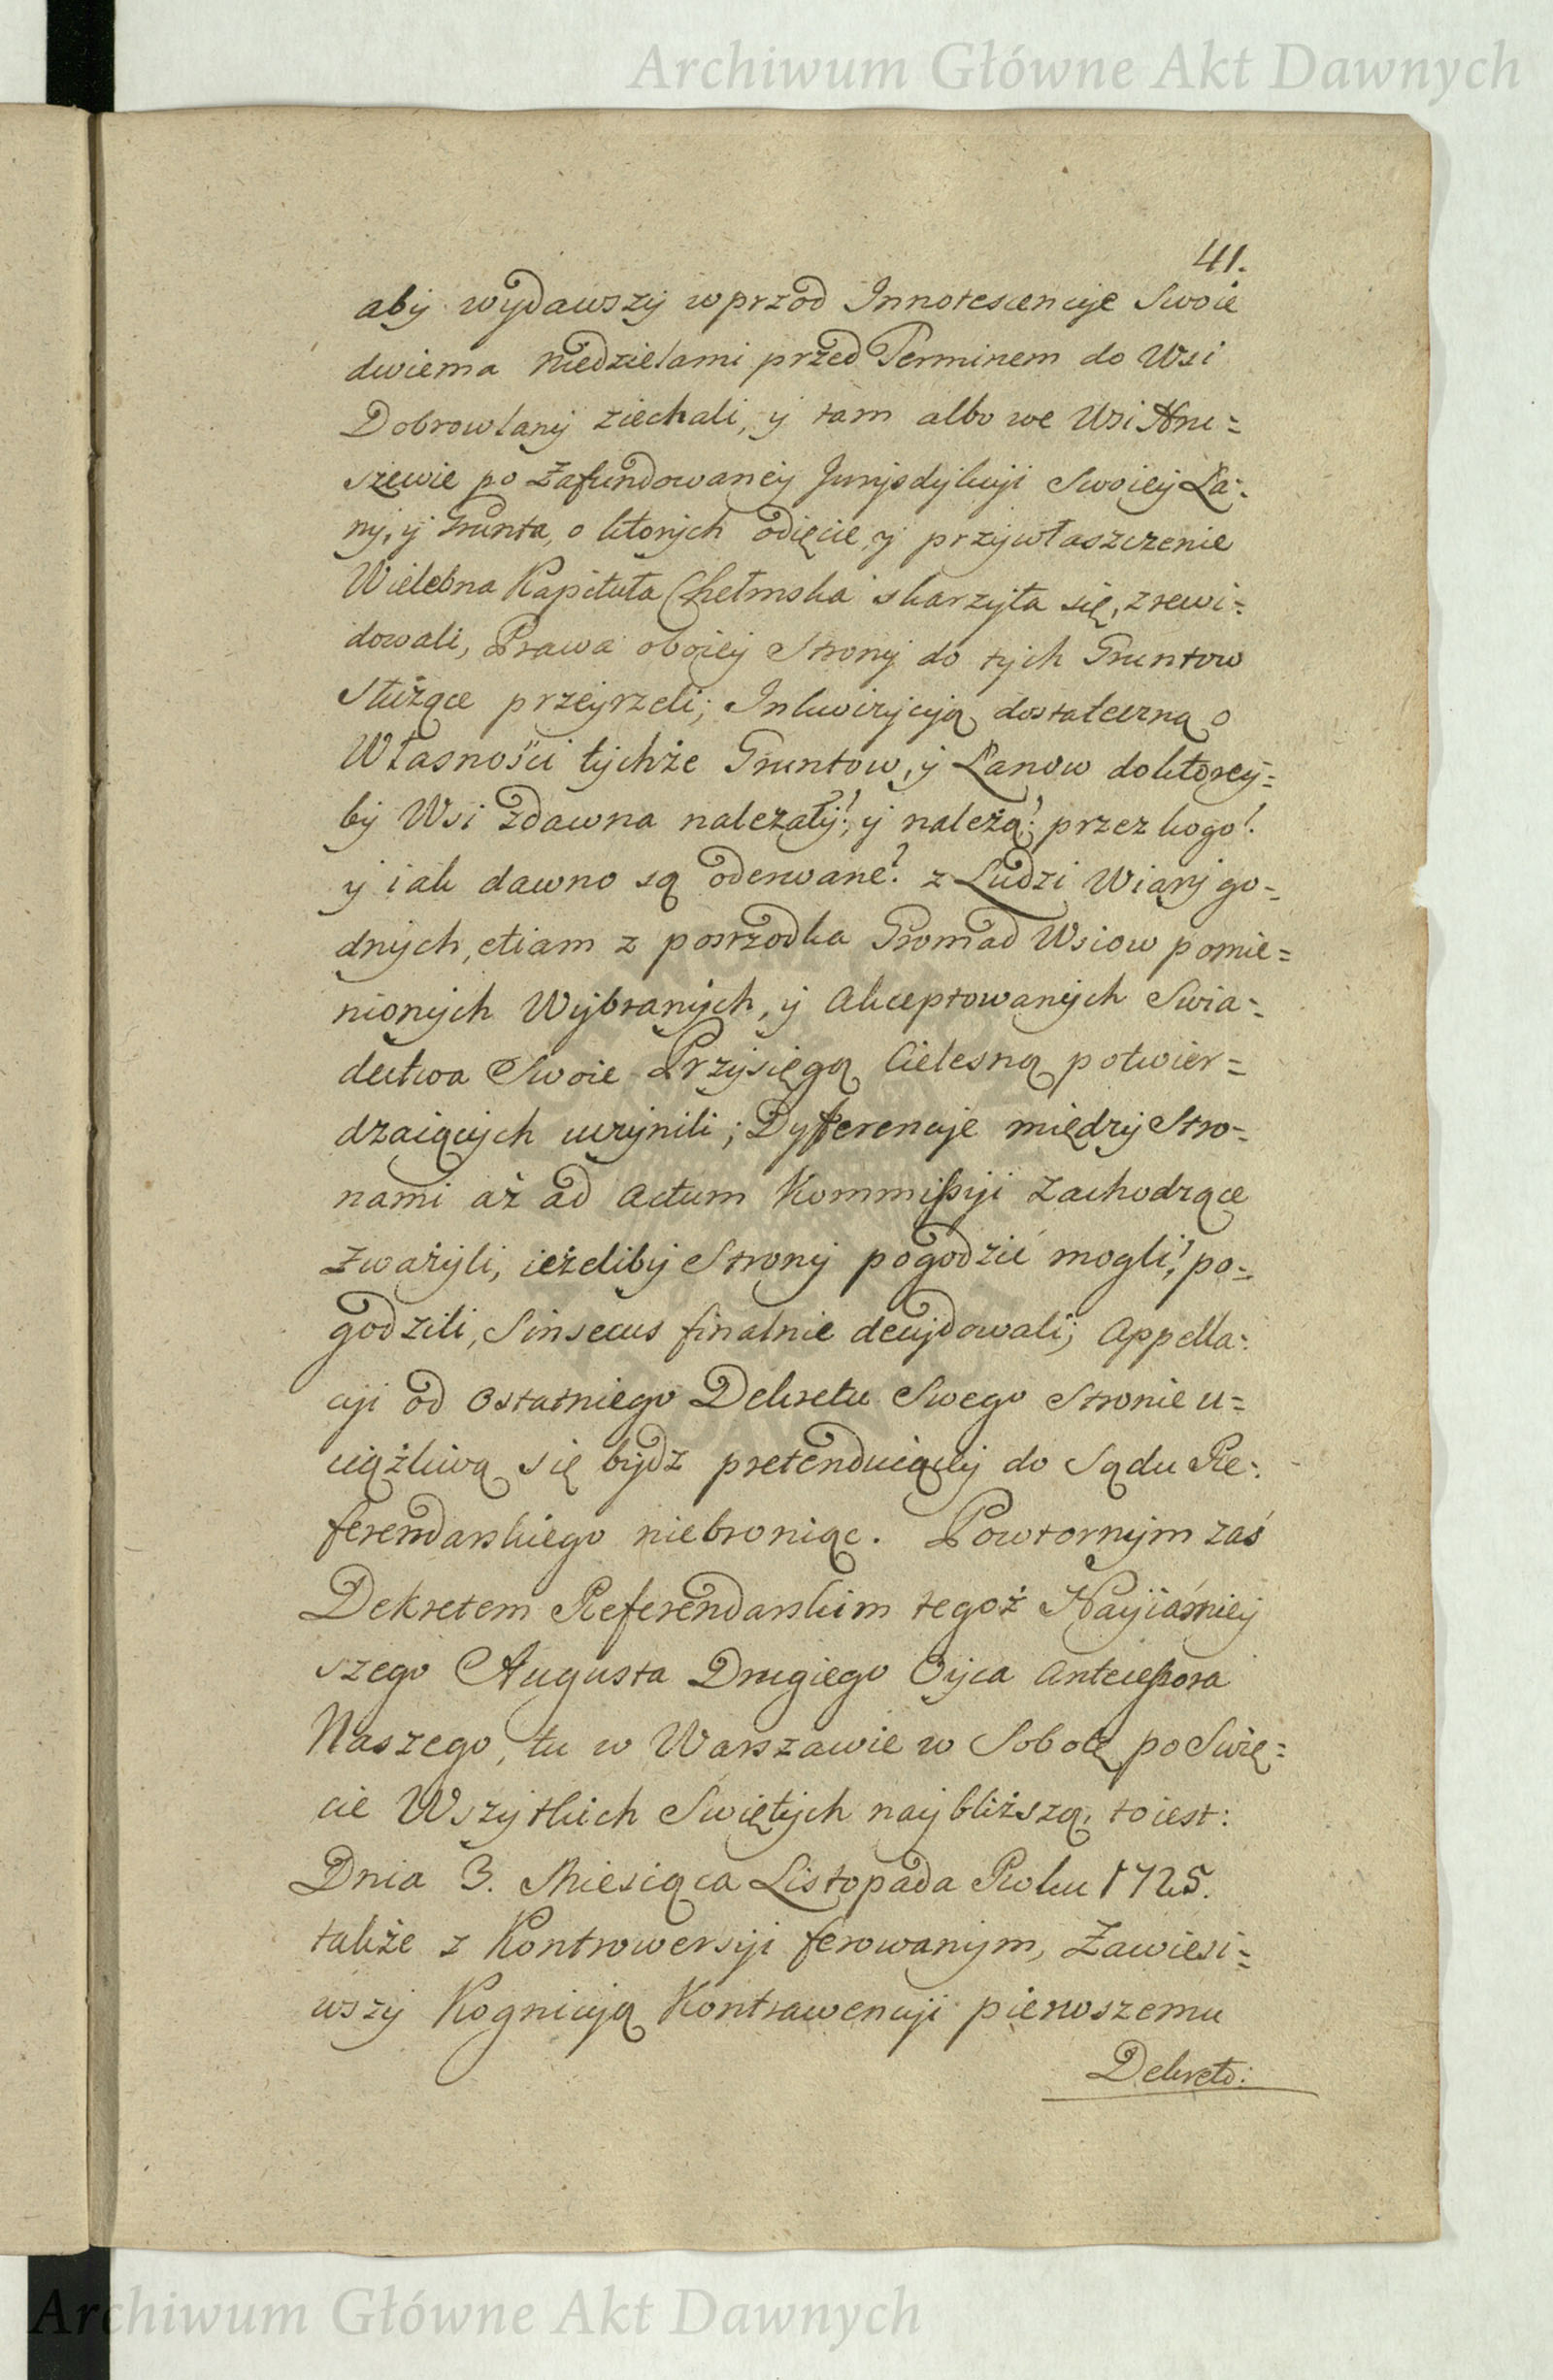 Archiwum Główne Akt Dawnych
41.
aby wydawszy wprzod Innotescencye Swoie
dwiema Niedzielami przed Terminem do Wsi
Dobrowlany ziechali, y tam albo we Wsi Hru=
szewie po Zafundowaney Jurysdykcyi Swoiey Ła=
ny, y Grunta, o ktorych odięcie, y przywłaszczenie
Wielebna Kapituła Chełmska skarzyła się, zrewi=
dowali, Prawa oboiey Strony do tych Gruntow
Służące przeyrzeli; Inkwizycyą dostateczną o
Własności tychże Gruntow, y Łanow doktorey=
by Wsi Zdawna należały?, y należą? przez kogo?
y iak dawno są oderwane? z Ludzi Wiary go=
dnych, etiam z posrzodka Gromad Wsiow pomie=
nionych Wybranych, y Akceptowanych Swia=
dectwa Swoie Przysięgą Cielesną potwier=
dzaiących uczynili; Dyfferencye między Stro=
nami aż ad Actum Kommissyi Zachodzące
Zważyli, ieżeliby Strony pogodzić mogli? po=
godzili, Sinsecus finalnie decydowali; Appella=
cyi od Ostatniego Dekretu Swego Stronie u=
ciążliwą się bydz pretenduiącey do Sądu Re=
ferendarskiego niebroniąc. Powtornym zaś
Dekretem Referendarskim tegoż Nayiaśniey
szego Augusta Drugiego Oyca Antecessora
Naszego, tu w Warszawie w Sobotę po Swię=
cie Wszytkich Swiętych naybliższą, to iest:
Dnia 3. Miesiąca Listopada Roku 1725.
także z Kontrowersyi ferowanym, Zawiesi=
wszy Kognicyą Kontrawencyi pierwszemu
Dekreto:
Archiwum Główne Akt Dawnych